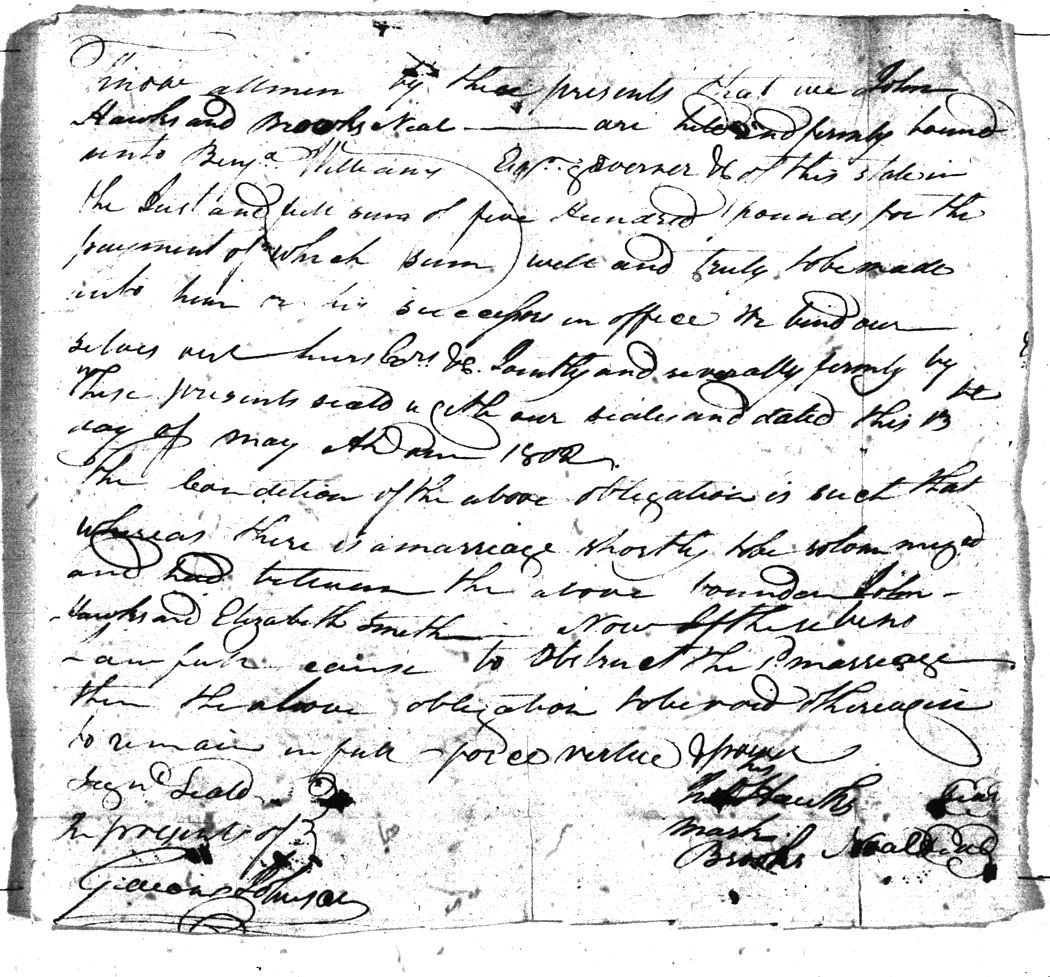 Know all men by these presents that we John
Hawks and Brooks Neal are held and firmly bound
unto Benja Williams Esqr governer &c of this state in
the Just and full sum of five Hundred pounds for the
payment of which sum well and truly to be made
unto him or his successors in office we bind our
selves our heirs &c Jointly and severally firmly by
these presents seald with our seales and dated this 13th
day of may 1802
The Condition of the above obligation is such that
whereas there is a marriage shortly to be solomnized
and had between the above bounden John
Hawks and Elizabeth Smith Now If there be no
Lawfull cause to Obstruct the sd marriage
then the above obligation to be void otherwise
to remain in full force vertue & power
Signd Seald his
Jno Hawks Seal
In presents of mark
Brooks Neal Seal
Gideon Johnson